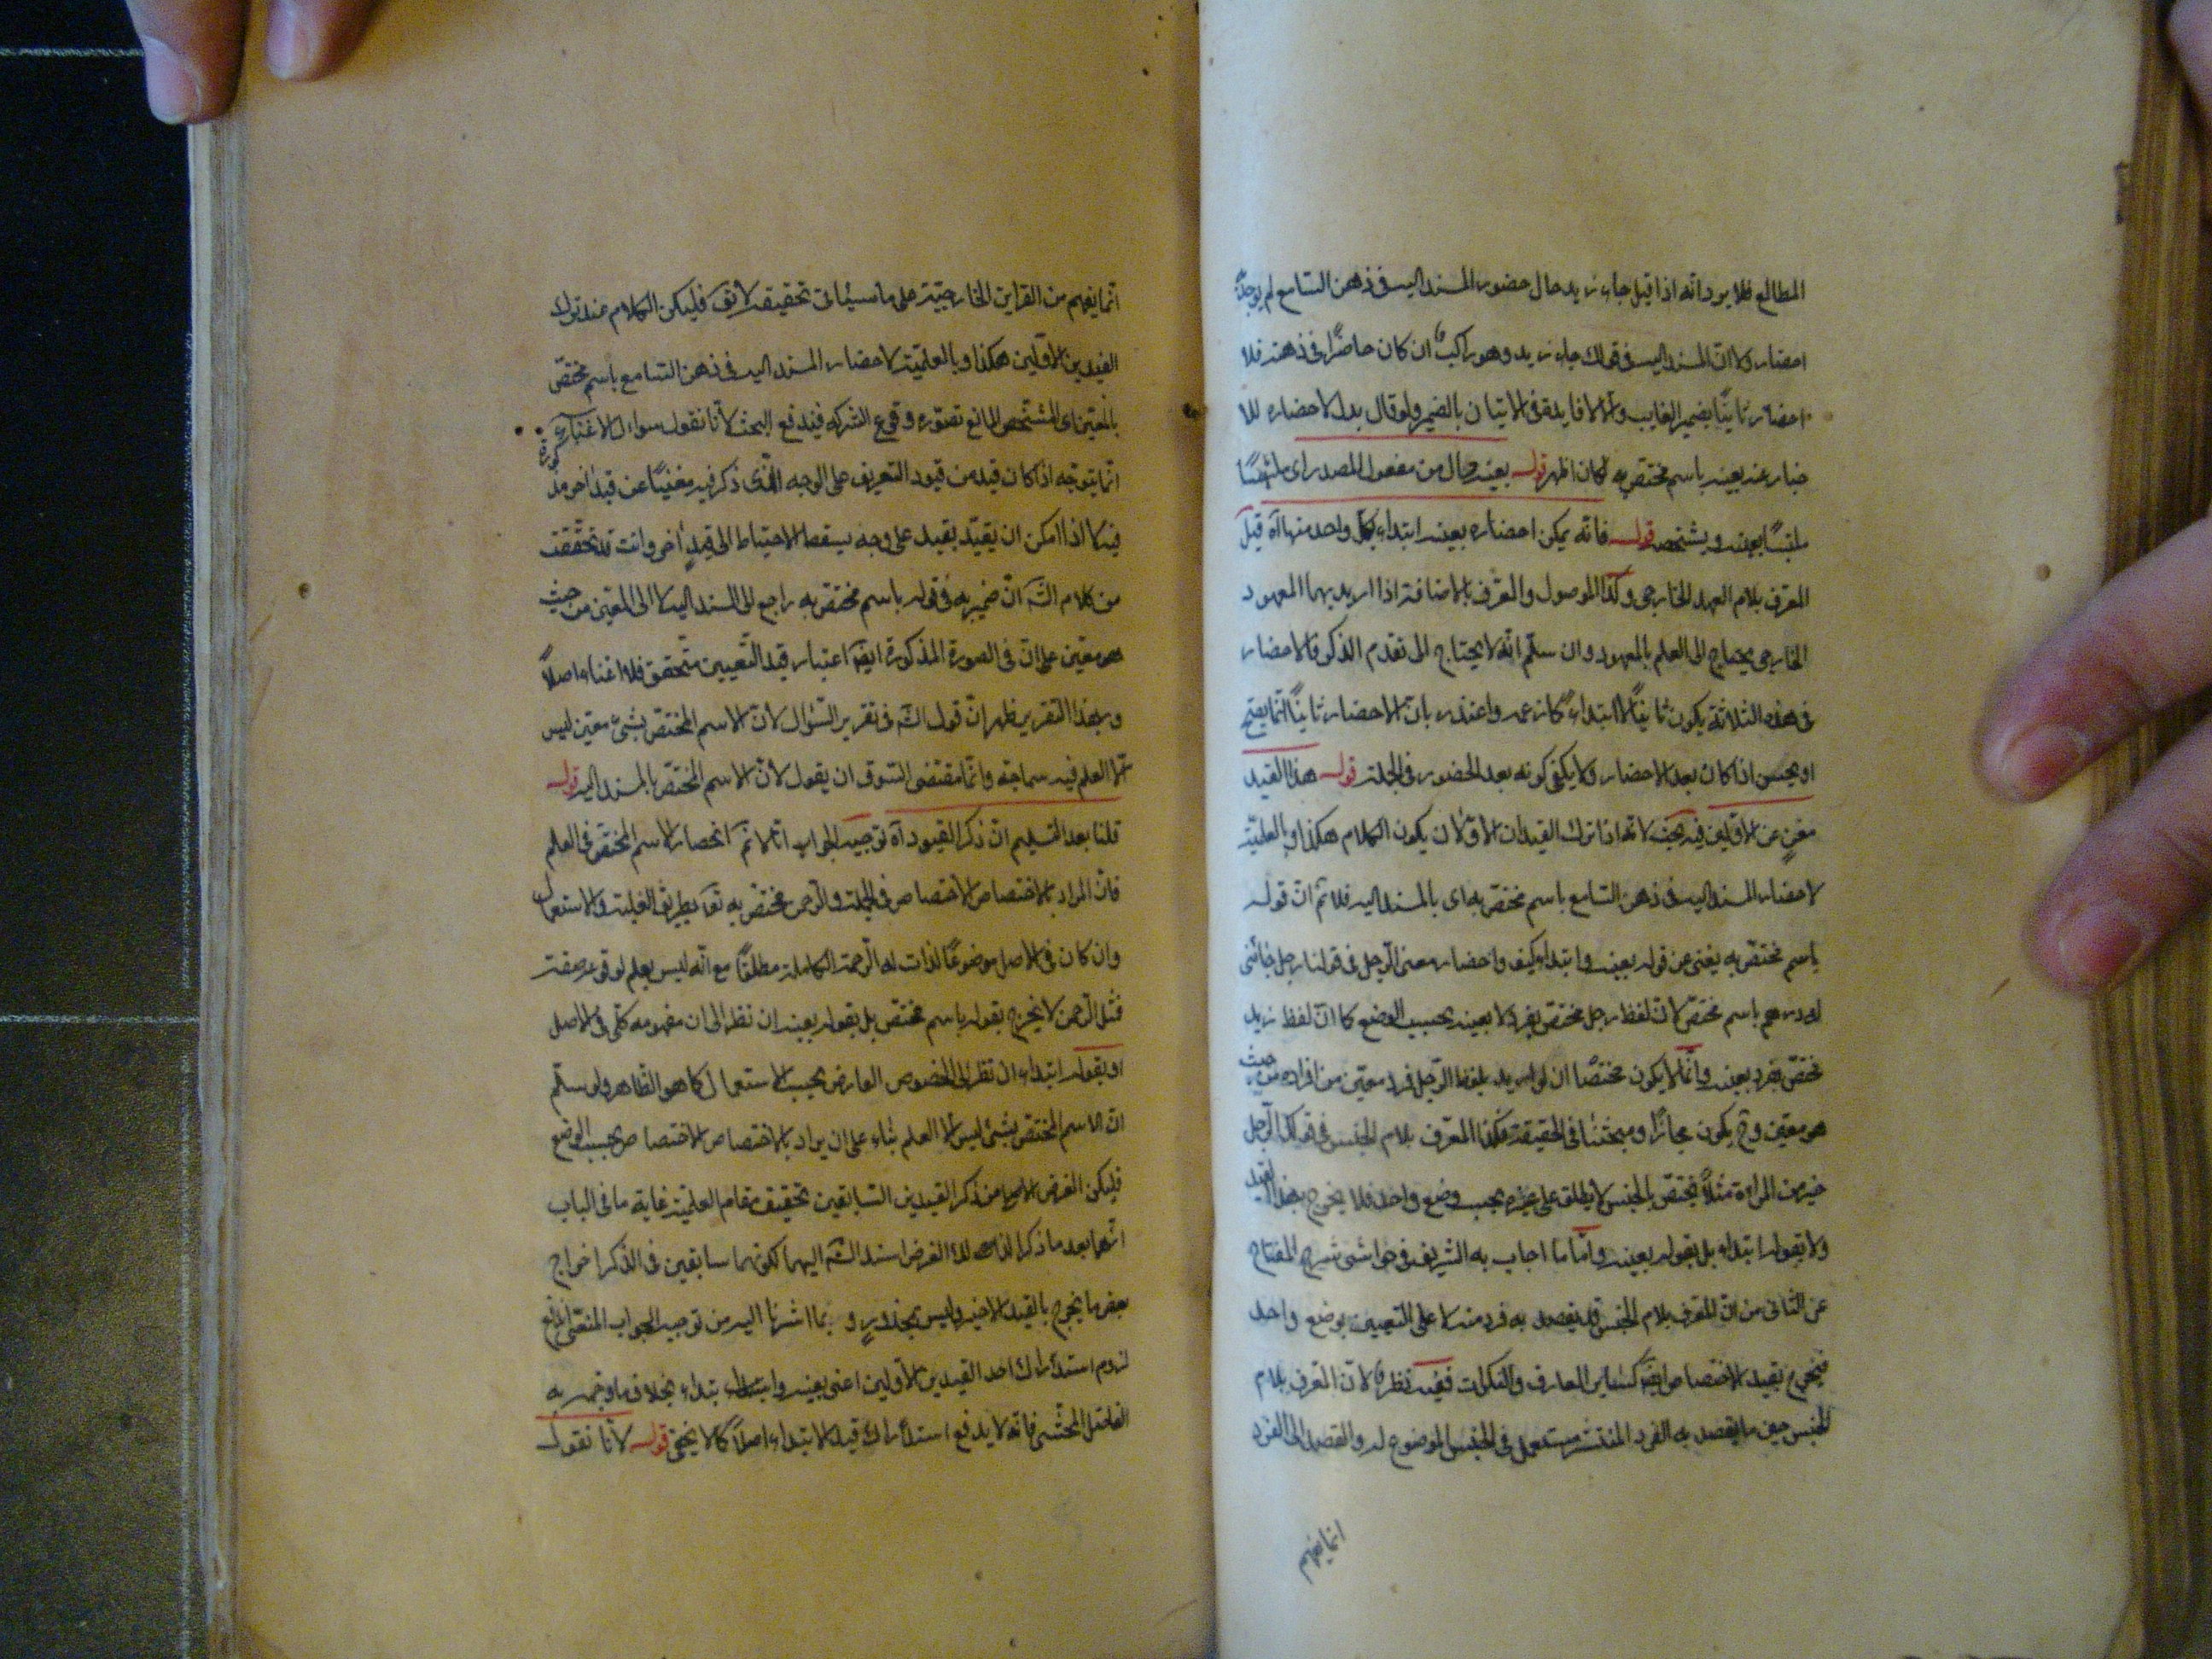 المطالع فلا يرد انه اذا قيل جاء زيد حال حضور المسند اليه في ذهن السامع لم يوجد
احضاره لا ان المسند اليه في قولك جاء زيد وهو راكب ان كان حاضرا في ذهنه فلا
احضار ثانيا بضمير الغايب والا فلا فايدة في الاتيان بالضمير ولو قال بدل لاحضاره للا
خبار عنه بعينه باسم مختص به لكان اظهر قوله بعينه حال من مفعول المصدر اى
ملتبسا بعينه وبشخصه قوله فانه يمكن احضاره بعينه ابتداء بكل واحد منها آه قيل
المعرف بلام العهد الخارجى وكذا الموصول والمعرف بالاضافة اذا اريد بهما المعهود
الخارجى يحتاج الى العلم بالمعهود وان سلم انه لا يحتاج الى تقدم الذكر فالاحضار
في هذه الثلاثة يكون ثانيا لا ابتداء كما زعمه واعتذر بان الاحضار ثانيا انما يصح
او يحسن اذا كان بعد الاحضار ولا يكفى كونه بعد الحضور في الجملة قوله هذا القيد
مغن عن الاولين فيه بحث لانه اذا ترك القيدان الاولان يكون الكلام هكذا وبالعلمية
لاحضار المسند اليه في ذهن السامع باسم مختص به اى بالمسند اليه فلا تم ان قوله
باسم مختص به يغنى عن قوله بعينه وابتداء كيف واحضار معنى الرجل في قولنا رجل جاءنى
باسم مختص لان لفظ رجل مختص بفرد لا بعينه بحسب الوضع كما ان لفظ زيد
مختص بفرد بعينه وانما لا يكون مختصا ان لو اريد بلفظ الرجل فرد معين من افراده من حيث
هو معين وح يكون مجازا ومبحثنا في الحقيقة وكذا المعرف بلام الجنس في قولك الرجل
خير من المراءة مثلا مختص بالجنس لا يطلق على غيره بحسب وضع واحد فلا يخرج بهذا القيد
ولا بقوله ابتداء بل بقوله بعينه واما ما اجاب به الشريف في حواشى شرح المفتاح
عن الثانى من ان المعرف بلام الجنس قد يقصد به فرد منه لا على التعيين بوضع واحد
فيخرج بقيد الاختصاص ايضا كساير المعارف والنكرات ففيه نظر لان المعرف بلام
الجنس حين ما يقصد به الفرد المنتشر مستعمل في الجنس الموضوع له والقصد الى الفرد
انما يفهم
انما يفهم من القراين الخارجية على ما سيئاتى تحقيقه لا يق فليكن الكلام عند ترك
القيدين الاولين هكذا وبالعلمية لاحضار المسند اليه في ذهن السامع باسم مختص
بالمعين اى المشخص المانع تصوره وقوع الشركة فيندفع البحث لانا نقول سواءل الاغناء
انما يتوجه اذا كان قيد من قيود التعريف على الوجه الذى ذكر فيه مغنيا عن قيد اخر مذكورة
فيه لا اذا امكن ان يقيد بقيد على وجه يسقط الاحتياط الى قيد اخر وانت قد تحققت
من كلام الشه ان ضمير به في قوله باسم مختص به راجع الى المسند اليه لا الى المعين من حيث
هو معين على ان في الصورة المذكورة ايضا اعتبار قيد التعيين متحقق فلا اغناء اصلا
وبهذا التقرير يظهر ان قول الشه في تقرير السؤال لان الاسم المختص بشئ معين ليس
الا العلم فيه سماجة وانما مقتضى السوق ان يقول لان الاسم المختص بالمسند اليه قوله
قلنا بعد التسليم ان ذكر القيود آه توجيه الجواب انا لا نم انحصار الاسم المختص في العلم
فان المراد بالاختصاص الاختصاص في الجملة والرحمن مختص به تعا بطريق الغلبة والاستعمال
وان كان في الاصل موضوعا لذات له الرحمة الكاملة مطلقا مع انه ليس بعلم لوقوعه صفة
فمثل الرحمن لا يخرج بقوله باسم مختص بل بقوله بعينه ان نظر الى ان مفهومه كلى في الاصل
او بقوله ابتداء ان نظر الى الخصوص العارض بحسب الاستعمال كما هو الظاهر ولو سلم
ان الاسم المختص بشئ ليس الا العلم بناء على ان يراد بالاختصاص الاختصاص بحسب الوضع
فليكن الغرض من ذكر القيدين السابقين تحقيق مقام العلمية غاية ما في الباب
انهما بعد ما ذكرا لذلك الغرض اسند الشه اليهما لكونهما سابقين في الذكر اخراج
بعض ما يخرج بالقيد الاخير وليس بمحذور وبما اشرنا اليه من توجيه الجواب المنقح اندفع
لزوم استدراك احد القيدين الاولين اعنى بعينه وابتداء بخلاف ما وجهه به
الفاضل المحشى فانه لا يدفع استدراك قيد الابتداء اصلا كما لا يخفى قوله لانا نقول